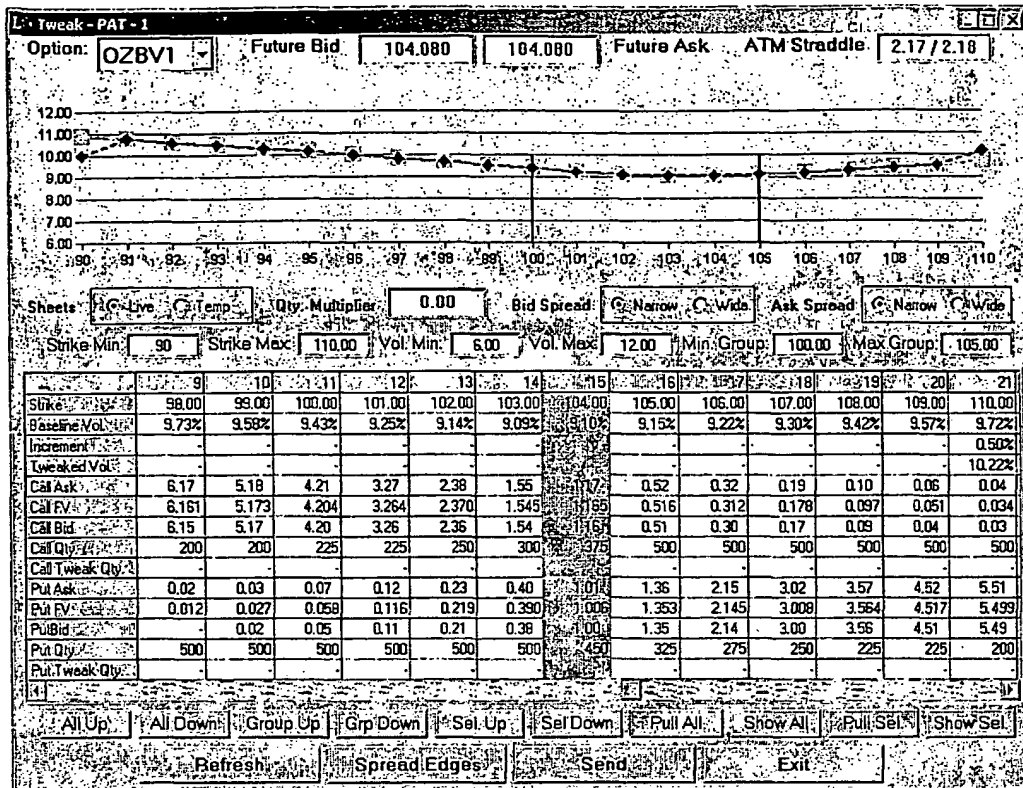 Tweak - PAT - 1
Option: OZBV1 Future Bid 104.080 104.080 Future Ask ATM Straddle 2.17 / 2.18
12.00
11.00
10.00
9.00
8.00
7.00
6.00
90 91 92 93 94 95 96 97 98 99 100 101 102 103 104 105 106 107 108 109 110
Sheets Live Temp Qty. Multiplier 0.00 Bid Spread Narrow Wide Ask Spread Narrow Wide
Strike Min 90 Strike Max 110.00 Vol. Min. 6.00 Vol. Max 12.00 Min. Group 100.00 Max Group 105.00
9 10 11 12 13 14 15 16 17 18 19 20 21
Strike 98.00 99.00 100.00 101.00 102.00 103.00 104.00 105.00 106.00 107.00 108.00 109.00 110.00
Baseline Vol. 9.73% 9.58% 9.43% 9.25% 9.14% 9.09% 9.10% 9.15% 9.22% 9.30% 9.42% 9.57% 9.72%
Increment - - - - - - - - - - - 0.50%
Tweaked Vol. - - - - - - - - - - - 10.22%
Call Ask 6.17 5.18 4.21 3.27 2.38 1.55 0.52 0.32 0.19 0.10 0.06 0.04
Call FV 6.161 5.173 4.204 3.264 2.370 1.545 0.516 0.312 0.178 0.097 0.051 0.034
Call Bid 6.15 5.17 4.20 3.26 2.36 1.54 1.16 0.51 0.30 0.17 0.09 0.04 0.03
Call Qty 200 200 225 225 250 300 375 500 500 500 500 500 500
Call Tweak Qty - - - - - - - - - - - -
Put Ask 0.02 0.03 0.07 0.12 0.23 0.40 1.01 1.36 2.15 3.02 3.57 4.52 5.51
Put FV 0.012 0.027 0.058 0.116 0.219 0.390 1.006 1.353 2.145 3.008 3.564 4.517 5.499
Put Bid - 0.02 0.05 0.11 0.21 0.38 1.00 1.35 2.14 3.00 3.56 4.51 5.49
Put Qty 500 500 500 500 500 500 450 325 275 250 225 225 200
Put Tweak Qty - - - - - - - - - - - -
All Up All Down Group Up Grp Down Sel. Up Sel Down Pull All Show All Pull Sel. Show Sel.
Refresh Spread Edges Send Exit